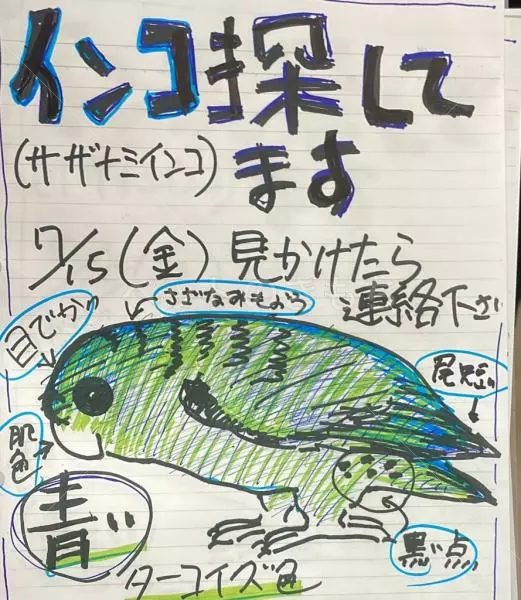 インコ探して
ます
(サザナミインコ)
7/15(金)見かけたら
連絡下さ
さざなみもよう
目でか
尾短い
肌
色
青い
黒い点
ターコイズ色